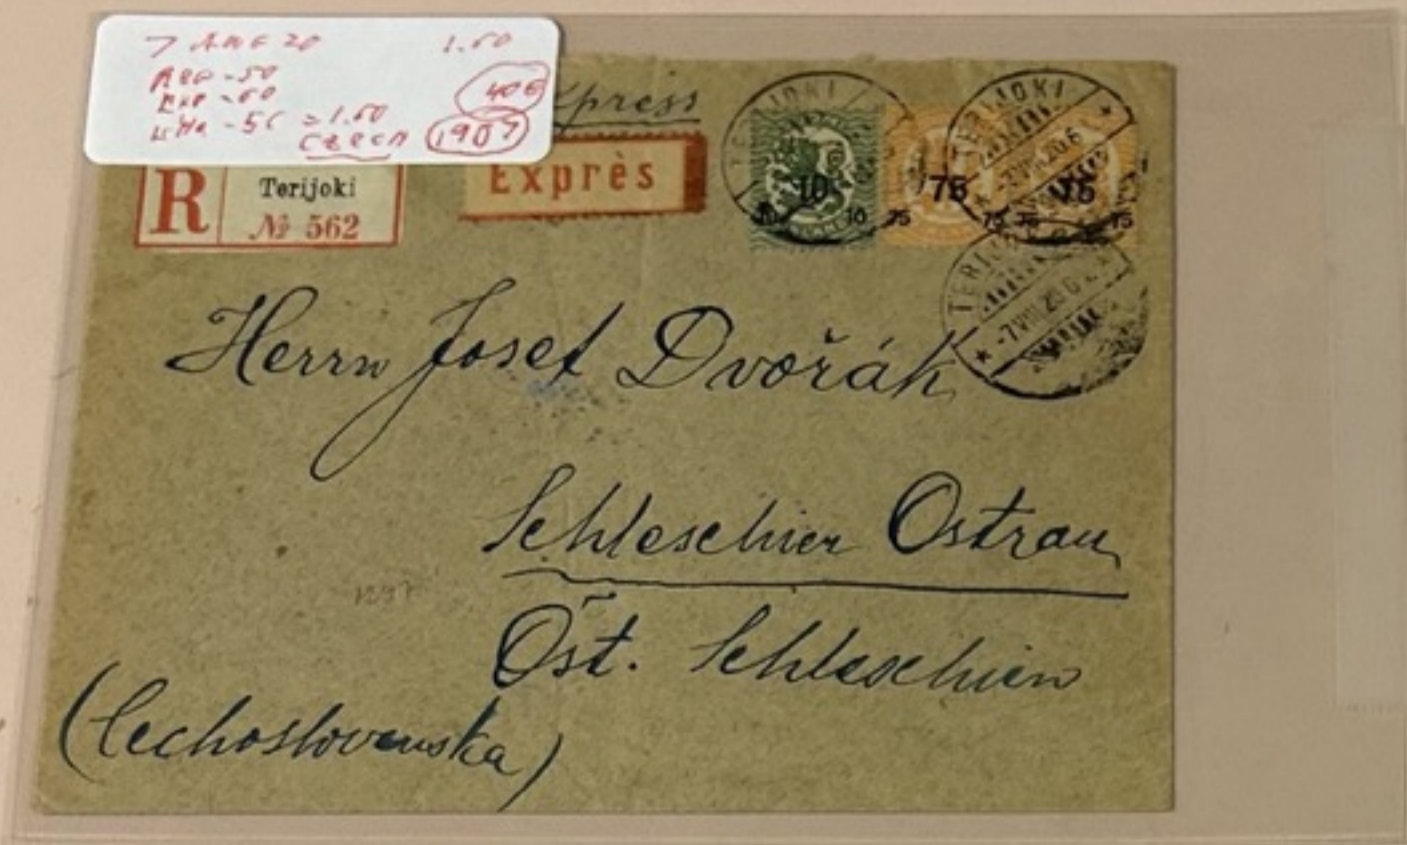 7 AUG 20 1.60
REG -50
EXP -60 40€
= 1.60
CZECH 1907
Express
R Terijoki
№ 562
Exprès
TERIJOKI
TERIJOKI
10
10 10
75 75
75 75 75
-7.VIII.20.6
-7.VIII.20.6
Herrn Josef Dvořák
Schleschien Ostrau
Öst. Schleschien
(Čechoslovenska)